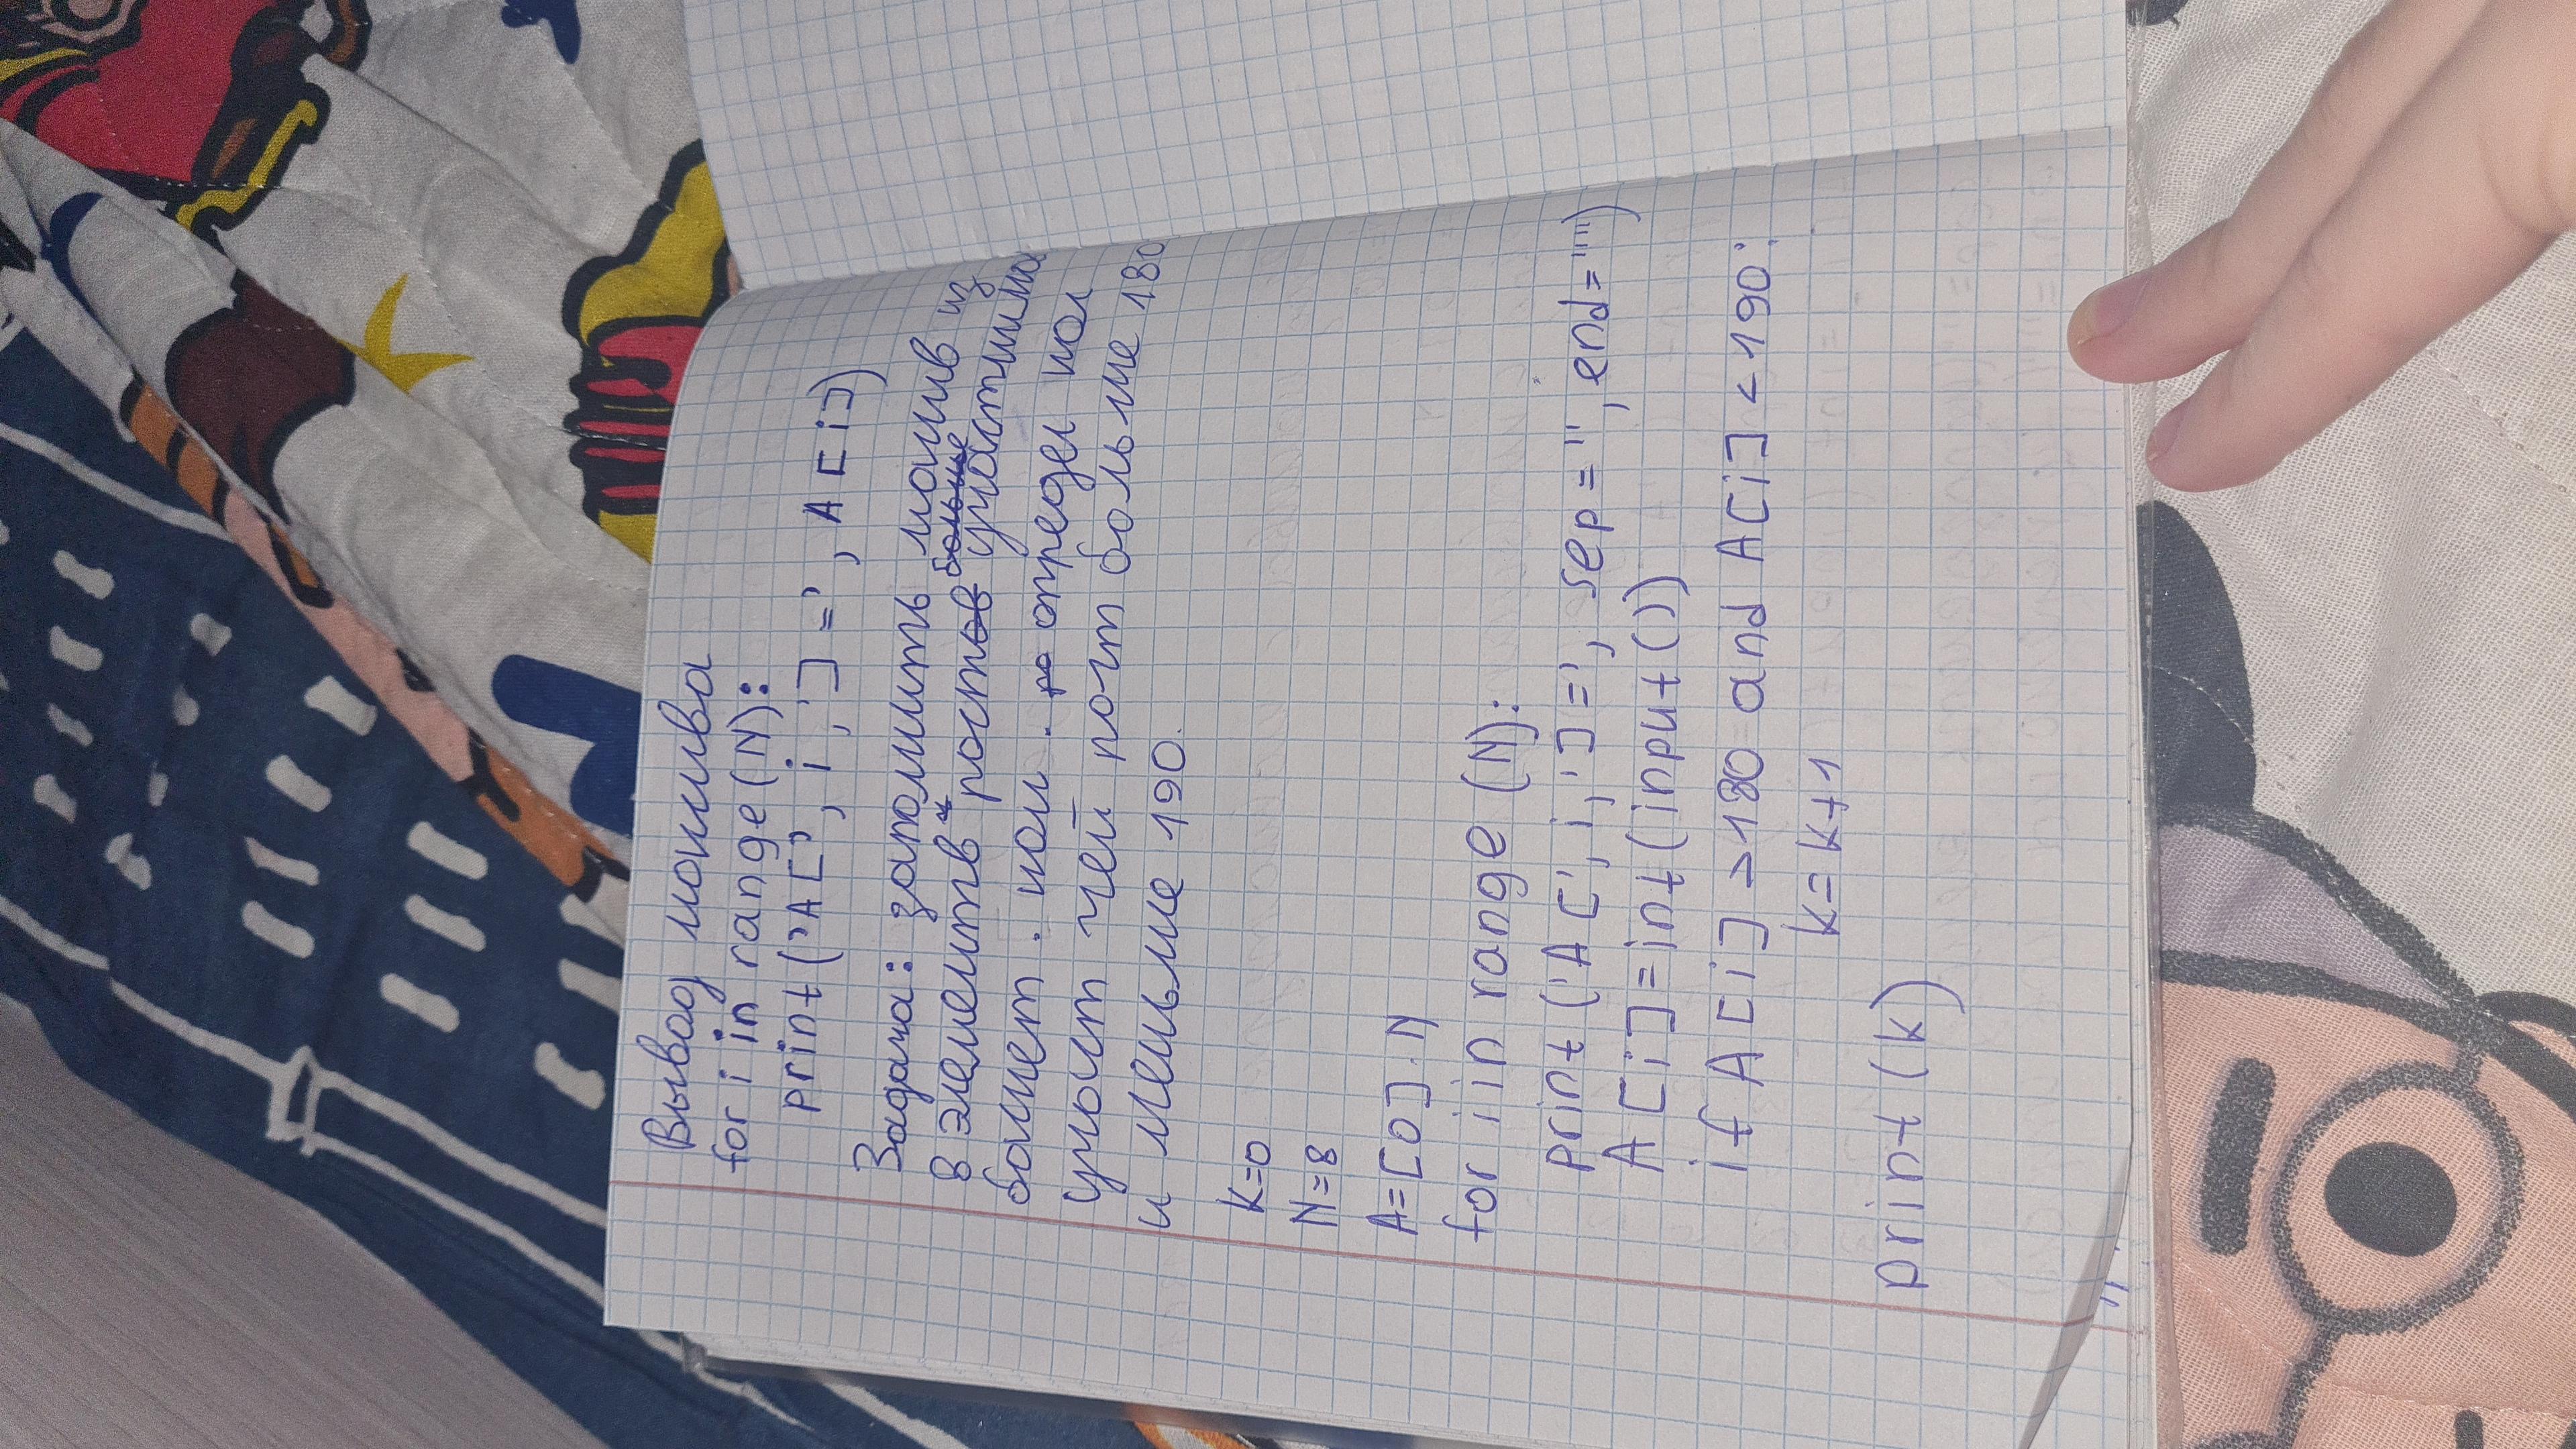 Вывод массива
for i in range(N):
print('A[', i, ']=', A[i])
Задача: заполнить массив из
8 элементв ростов больше участника
баскет. кол. р опредед кол
участ чей рост больше 180
и меньше 190.
k=0
N=8
A=[0]·N
for i in range (N):
print('A[', i, ']=', sep="", end="")
A[i]=int(input())
if A[i]>180 and A[i]<190:
k=k+1
print(k)